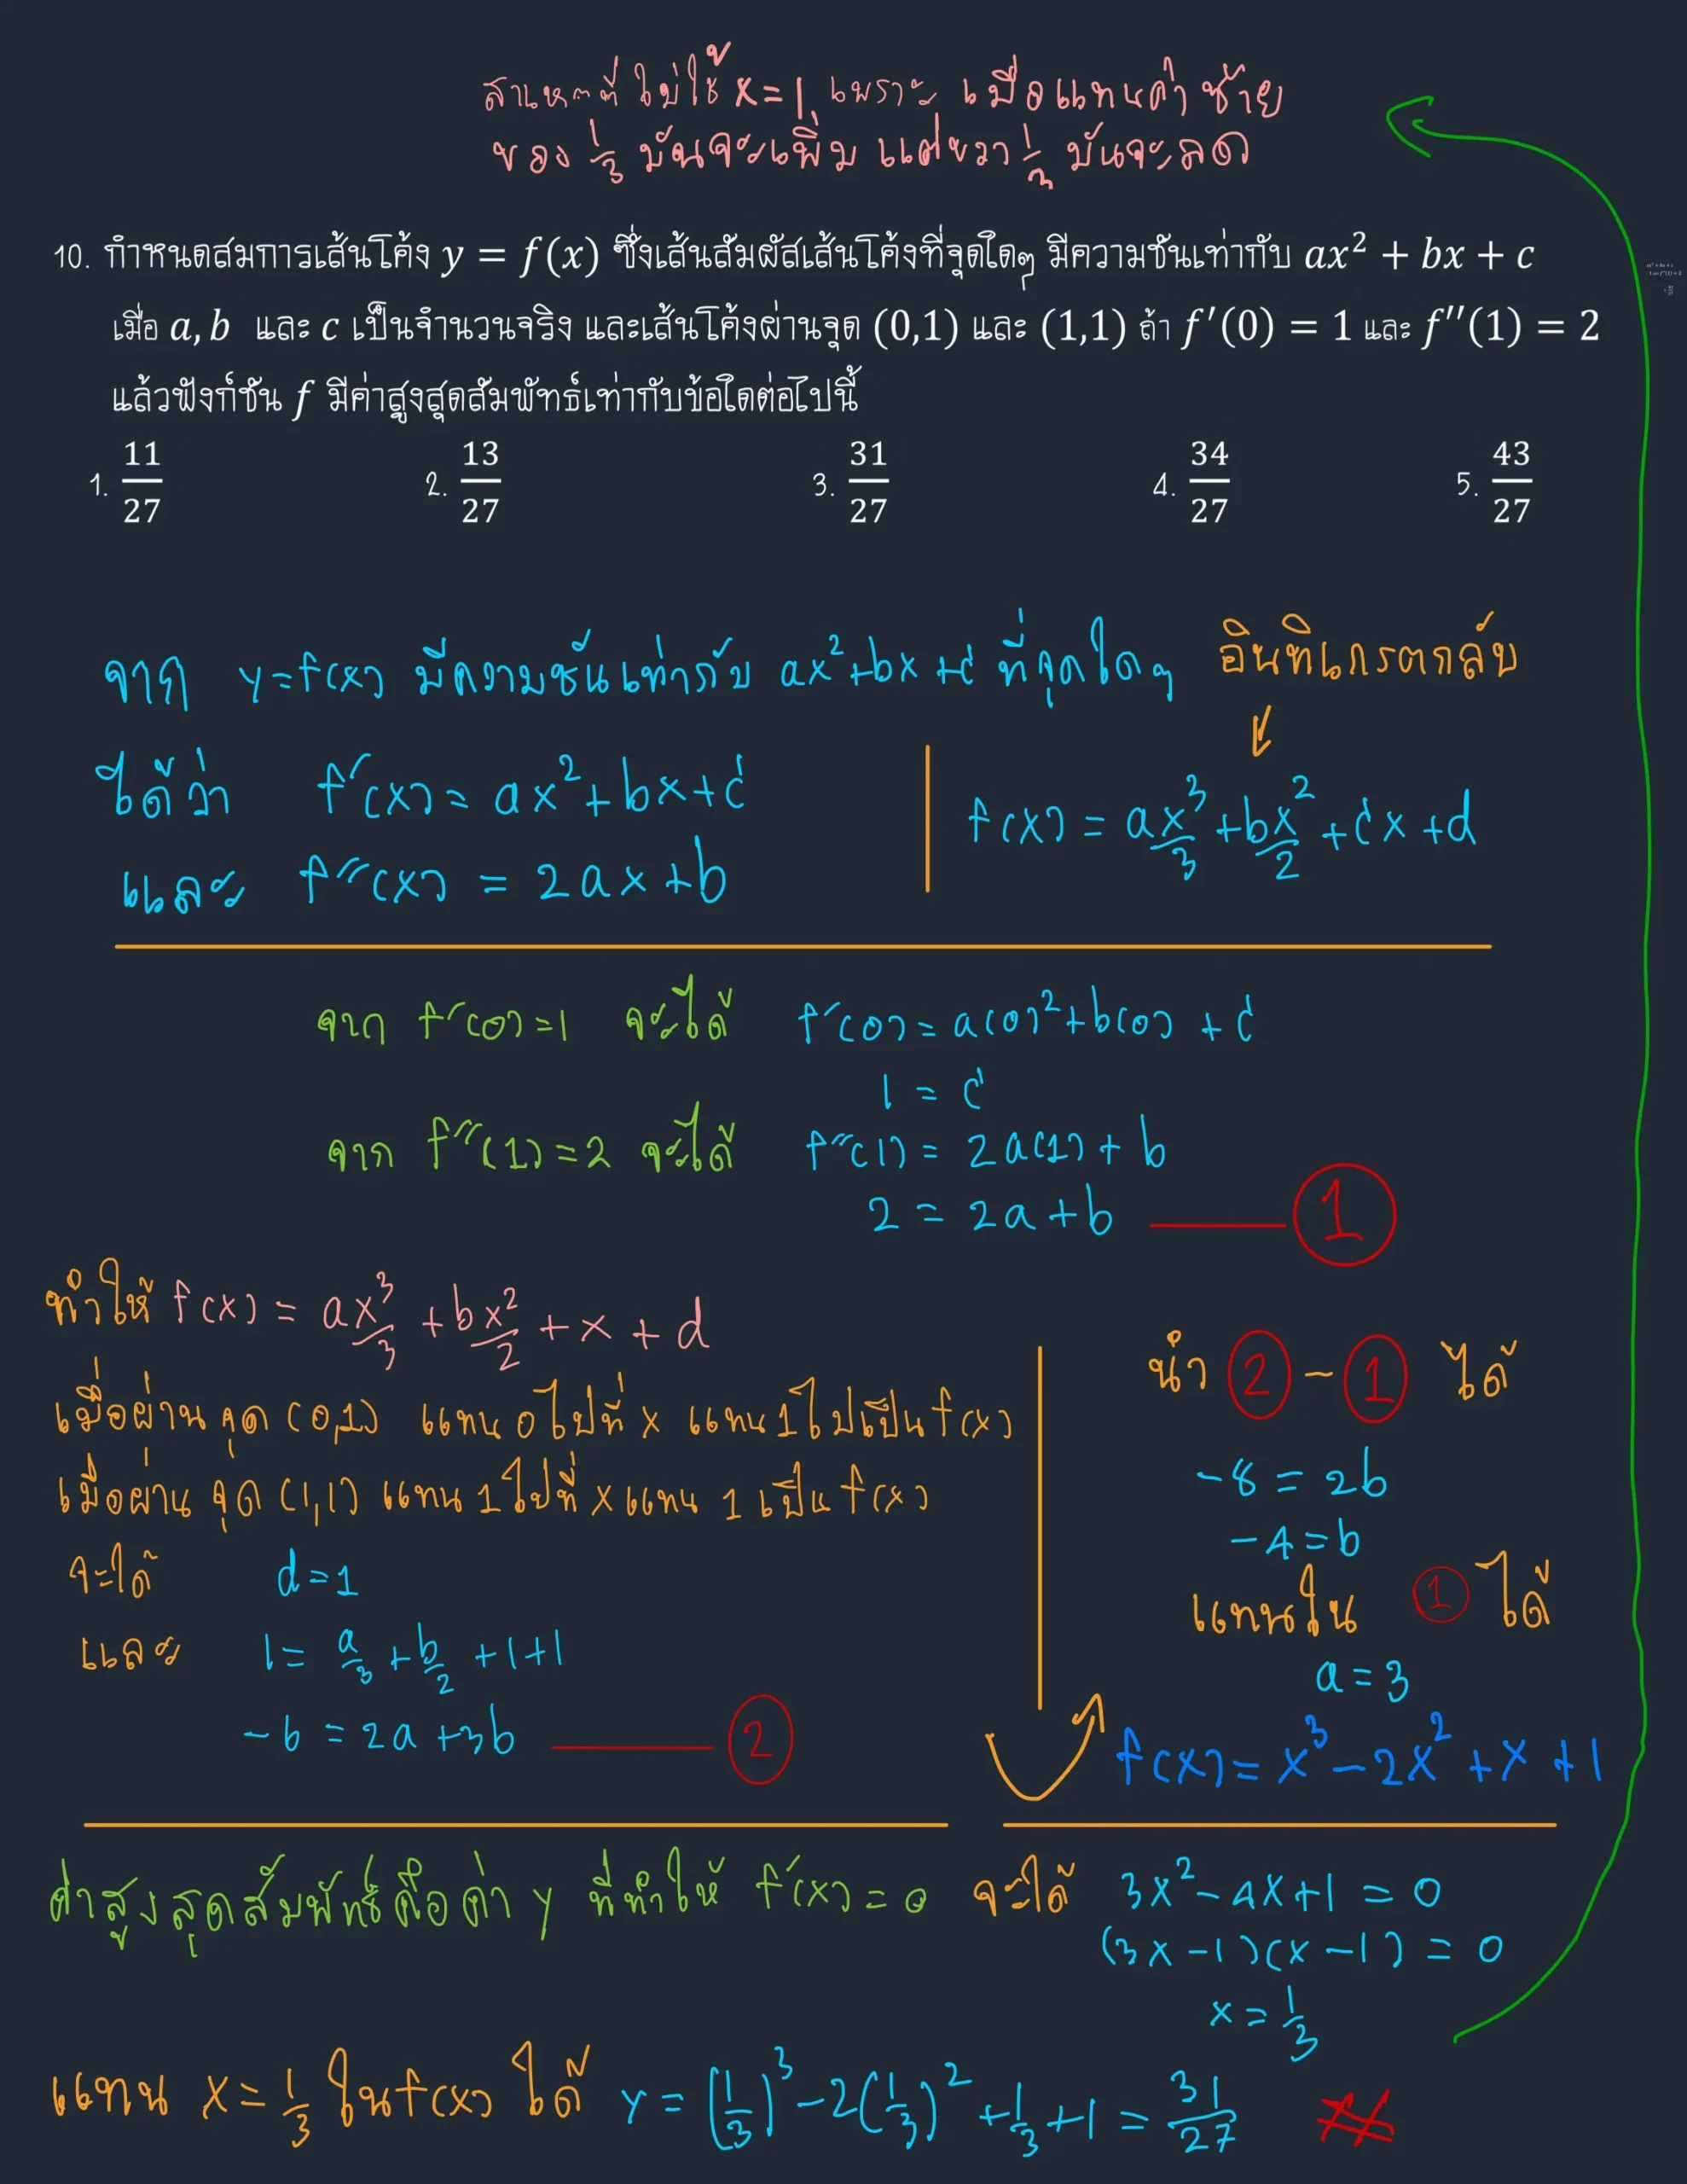 สาเหตุที่ไม่ใช้ x=1 เพราะ เมื่อแทนค่าซ้าย
ของ 1/3 มันจะเพิ่ม แต่ขวา 1/3 มันจะลด
10. กำหนดสมการเส้นโค้ง y = f(x) ซึ่งเส้นสัมผัสเส้นโค้งที่จุดใดๆ มีความชันเท่ากับ ax² + bx + c
เมื่อ a, b และ c เป็นจำนวนจริง และเส้นโค้งผ่านจุด (0,1) และ (1,1) ถ้า f′(0) = 1 และ f′′(1) = 2
แล้วฟังก์ชัน f มีค่าสูงสุดสัมพัทธ์เท่ากับข้อใดต่อไปนี้
1. 11/27 2. 13/27 3. 31/27 4. 34/27 5. 43/27
จาก y=f(x) มีความชันเท่ากับ ax²+bx+c ที่จุดใดๆ อินทิเกรตกลับ
ได้ว่า f′(x) = ax²+bx+c
f(x) = ax³/3 + bx²/2 + cx + d
และ f″(x) = 2ax+b
จาก f′(0)=1 จะได้ f′(0) = a(0)²+b(0)+c
1 = c
จาก f″(1)=2 จะได้ f″(1) = 2a(1)+b
2 = 2a+b ① 
ทำให้ f(x) = ax³/3 + bx²/2 + x + d
เมื่อผ่านจุด (0,1) แทน 0 ไปที่ x แทน 1 ไปเป็น f(x)
เมื่อผ่านจุด (1,1) แทน 1 ไปที่ x แทน 1 เป็น f(x)
จะได้ d=1
และ 1 = a/3 + b/2 + 1+1
-6 = 2a+3b ②
นำ ② - ① ได้
-8 = 2b
-4 = b
แทนใน ① ได้
a = 3
f(x) = x³-2x²+x+1
ค่าสูงสุดสัมพัทธ์คือค่า y ที่ทำให้ f′(x) = 0 จะได้ 3x²-4x+1 = 0
(3x-1)(x-1) = 0
x = 1/3
แทน x = 1/3 ใน f(x) ได้ y = (1/3)³ - 2(1/3)² + 1/3 + 1 = 31/27 #